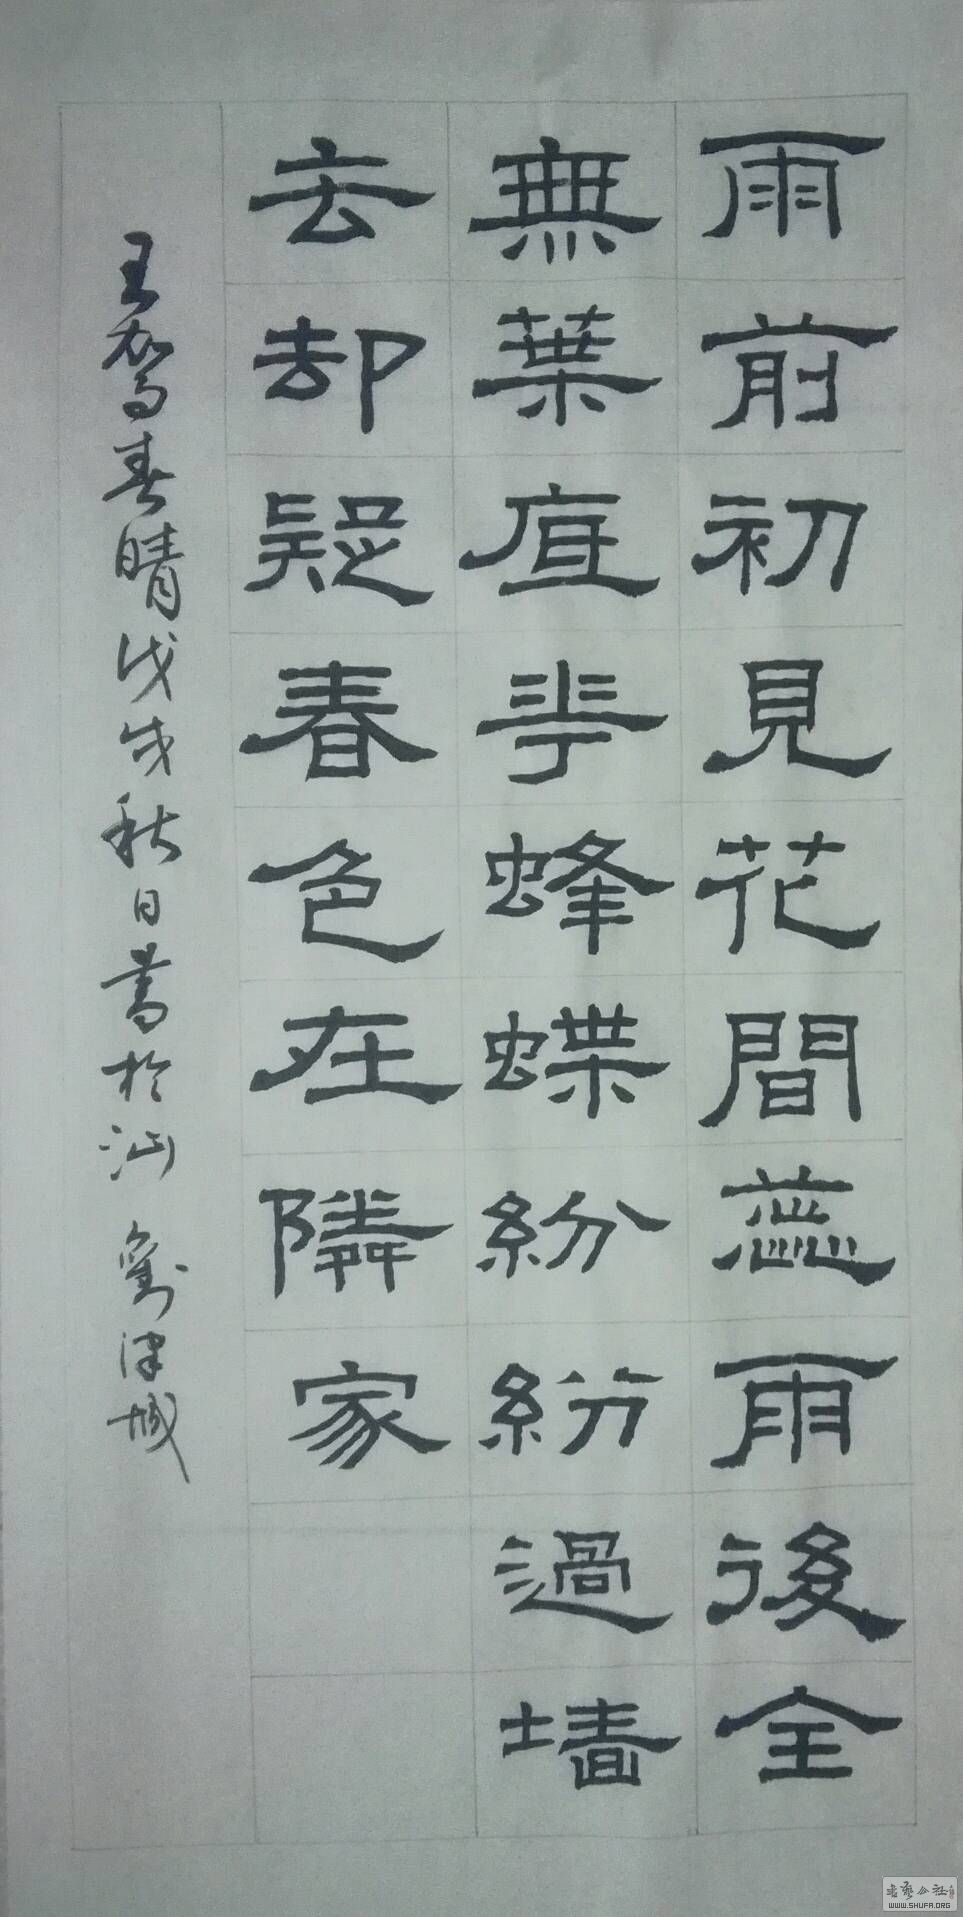 雨前初見花間蕊雨後全
無葉底華蜂蝶紛紛過墙
去却疑春色在隣家
王駕春晴戊戌秋日書於汕 劉津城
书艺公社
WWW.SHUFA.ORG